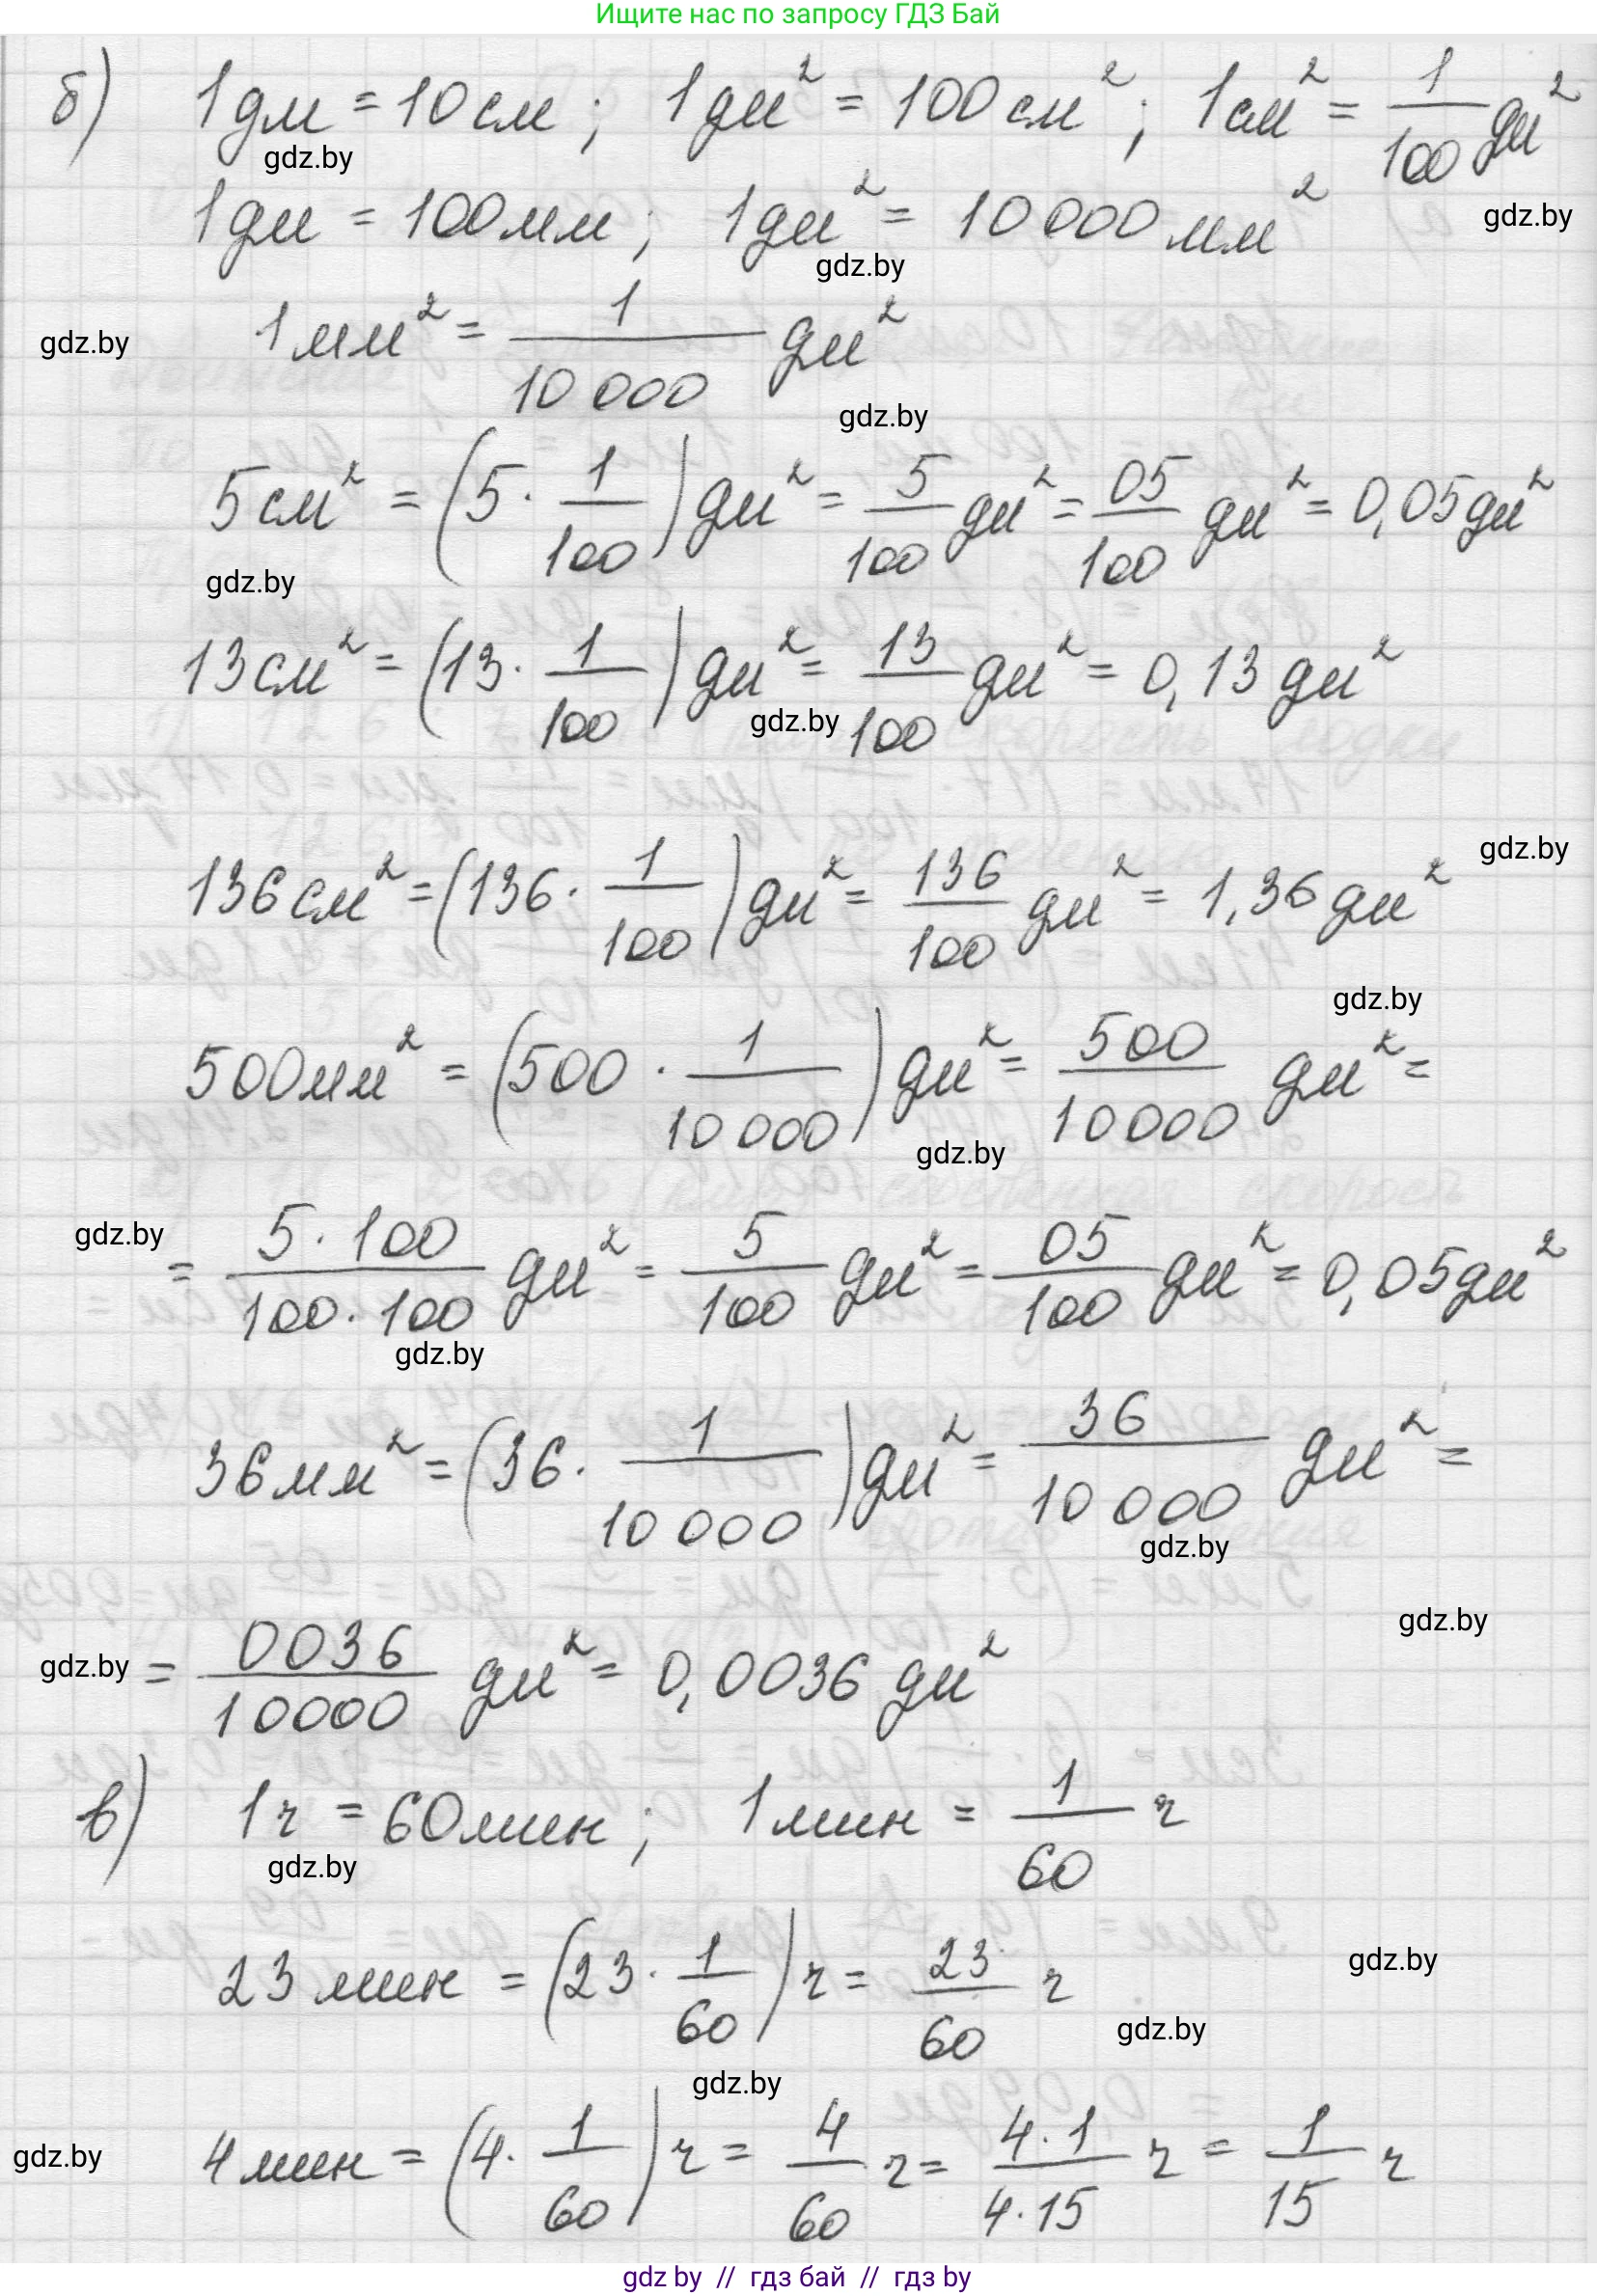 Ищите нас по запросу ГДЗ Бай
б) 1 дм = 10 см; 1 дм² = 100 см²; 1 см² = 1/100 дм²
gdz.by
1 дм = 100 мм; 1 дм² = 10 000 мм²
gdz.by
gdz.by
1 мм² = 1/10 000 дм²
gdz.by
gdz.by
5 см² = (5 · 1/100) дм² = 5/100 дм² = 05/100 дм² = 0,05 дм²
gdz.by
13 см² = (13 · 1/100) дм² = 13/100 дм² = 0,13 дм²
gdz.by
136 см² = (136 · 1/100) дм² = 136/100 дм² = 1,36 дм²
gdz.by
gdz.by
500 мм² = (500 · 1/10 000) дм² = 500/10 000 дм² =
gdz.by
gdz.by
= 5 · 100/100 · 100 дм² = 5/100 дм² = 05/100 дм² = 0,05 дм²
gdz.by
36 мм² = (36 · 1/10 000) дм² = 36/10 000 дм² =
gdz.by
gdz.by
gdz.by
= 0036/10000 дм² = 0,0036 дм²
в) 1 ч = 60 мин; 1 мин = 1/60 ч
gdz.by
23 мин = (23 · 1/60) ч = 23/60 ч
gdz.by
gdz.by
gdz.by
gdz.by
4 мин = (4 · 1/60) ч = 4/60 ч = 4 · 1/4 · 15 ч = 1/15 ч
gdz by // гдз бай // гдз by